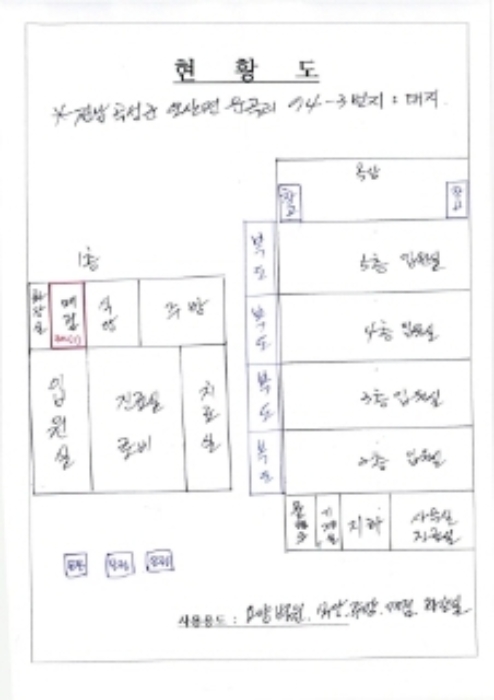 현 황 도
※ 전남 곡성군 삼산면 운곡리 94-3번지 : 대지
옥상
창고
창고
복도
5층 입원실
1층
화장실
매점
식당
주방
복도
4층 입원실
입원실
진료실
로비
치료실
복도
3층 입원실
복도
2층 입원실
기계실
지하
사무실
사용용도 : 요양병원, 식당, 주방, 매점, 화장실